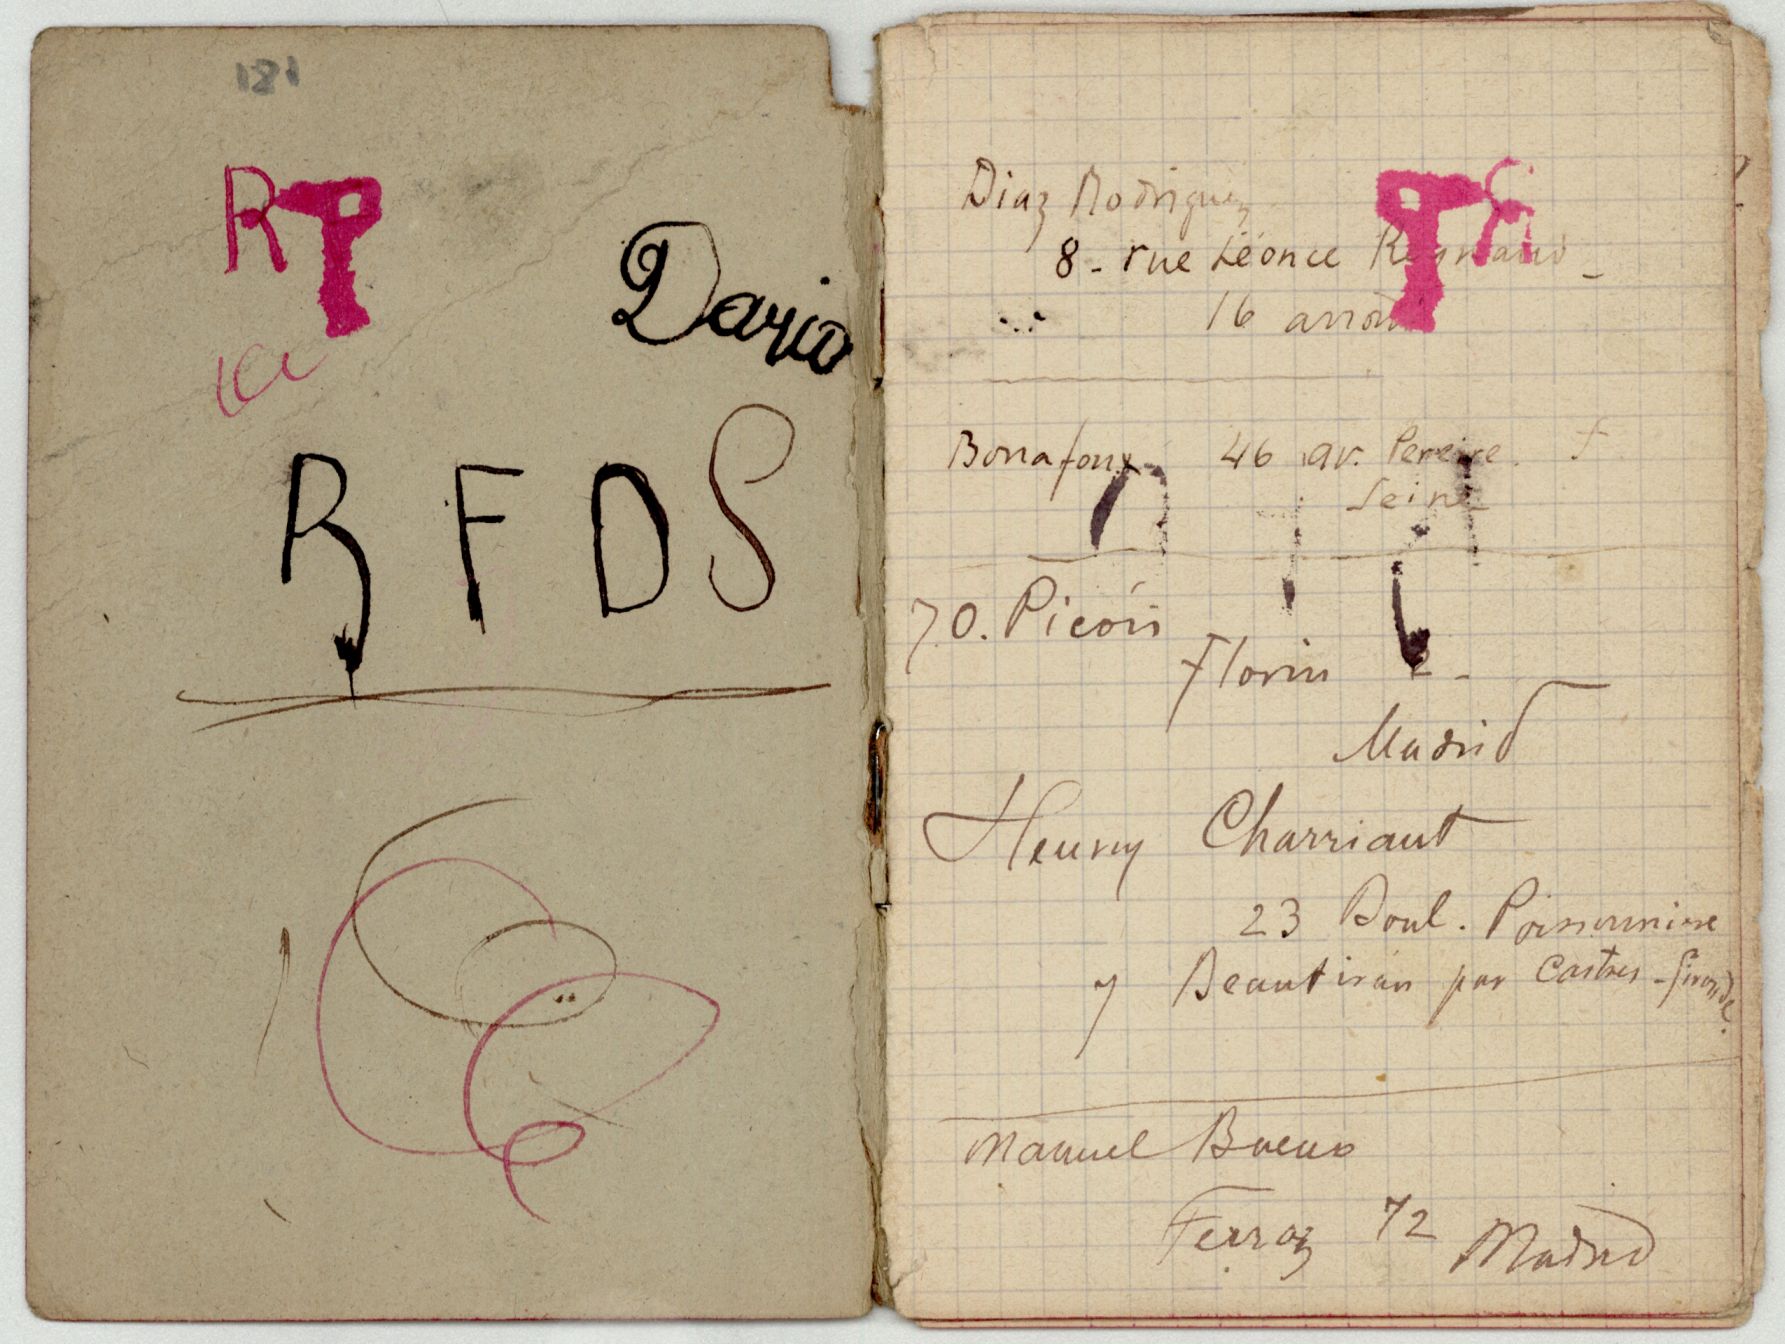 181
R P
Dario
R F D S
Diaz Rodriguez
8 - rue Léonce Reynaud -
16 arrond
Bonafoux 46 av. Pereire
Seine
J O. Picón
Florin 2 -
Madrid
Henry Charriaut
23 Boul. Poissonnière
y Beautiran par Castres - Gironde.
Manuel Bueno
Ferraz 72 Madrid